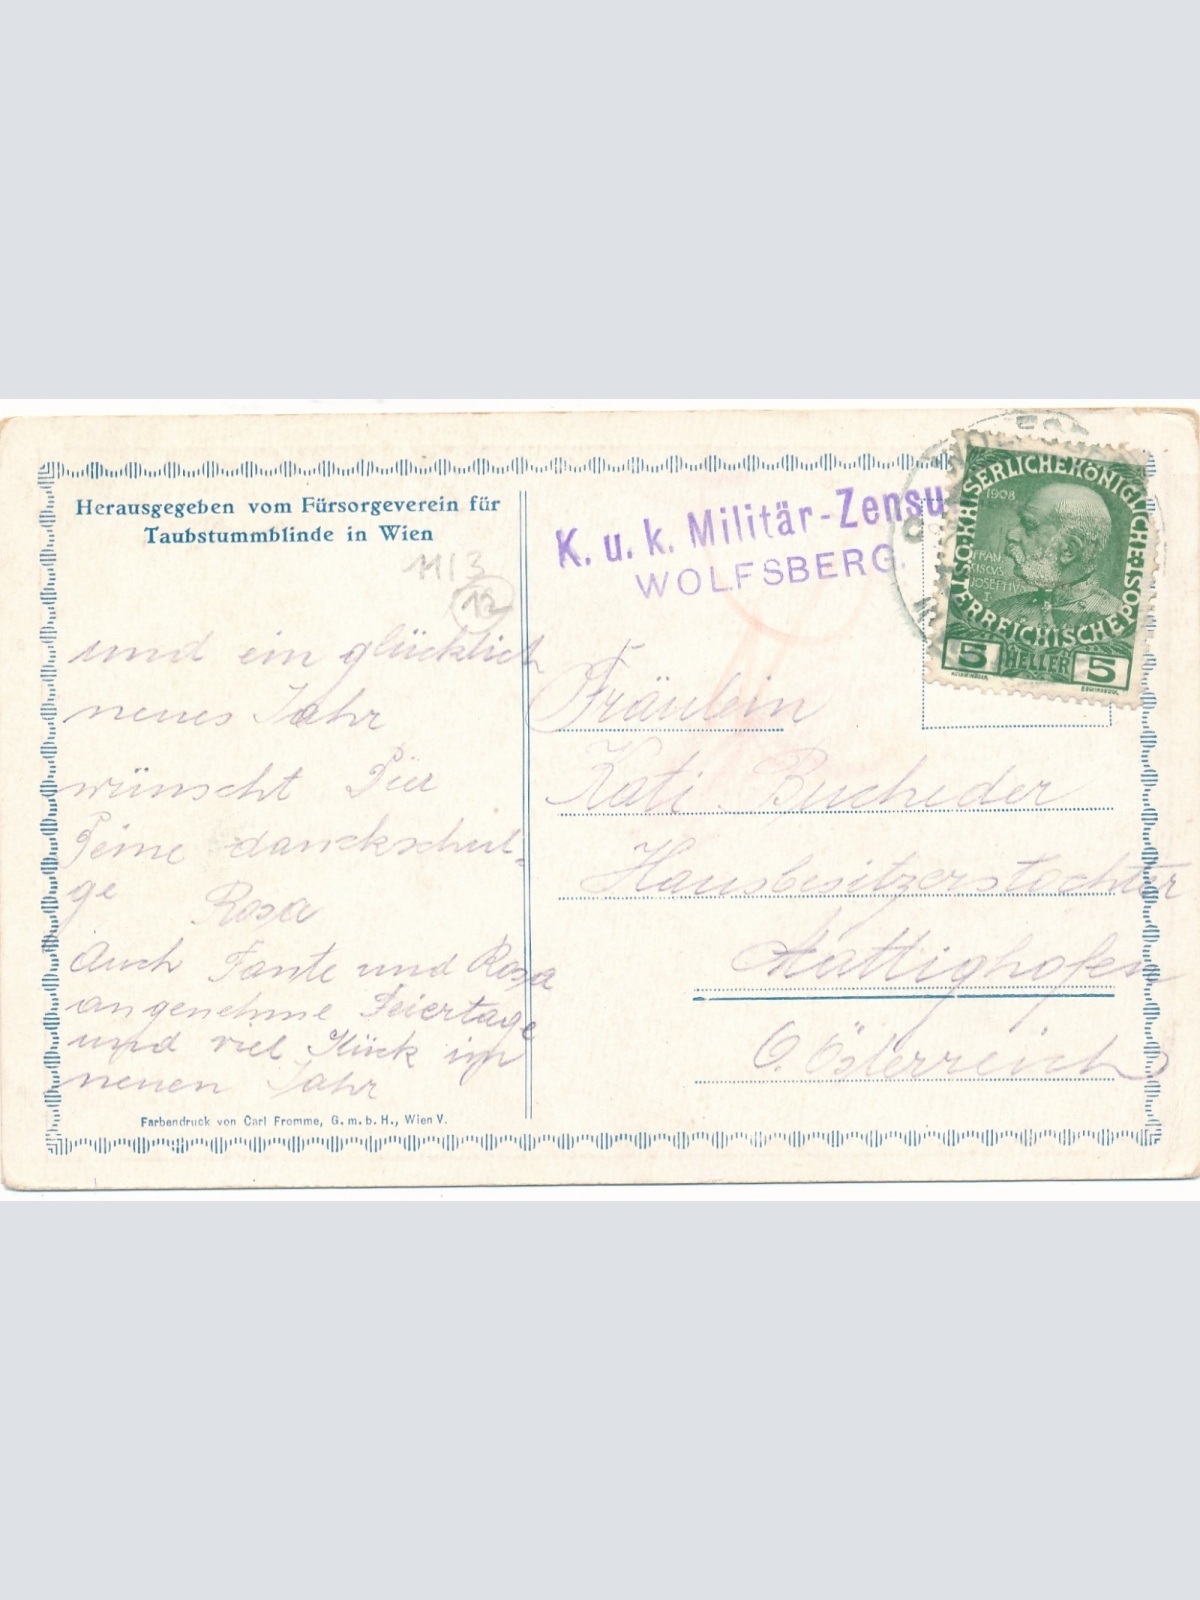 Herausgegeben vom Fürsorgeverein für
Taubstummblinde in Wien
11/3
12
und ein glücklich
neues Jahr
wünscht Dir
Deine danckschul-
ge Rosa
Auch Tante und Rosa
angenehme Feiertage
und viel Glück im
neuen Jahr
Farbendruck von Carl Fromme, G. m. b. H., Wien V.
K. u. k. Militär-Zensu
WOLFSBERG.
1908
FRAN
CISCVS
JOSEFTVS
I
ÖSTERREICHISCHE POST
KAISERLICHE KÖNIGLICHE
5 HELLER 5
Fräulein
Kati Bucheder
Hausbesitzerstochter
Mattighofen
O. Österreich